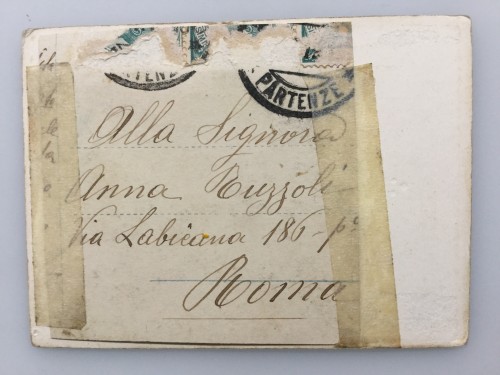 PARTENZE
PARTENZE
Alla Signora
Anna Ruzzoli
Via Labicana 186 - pº
Roma